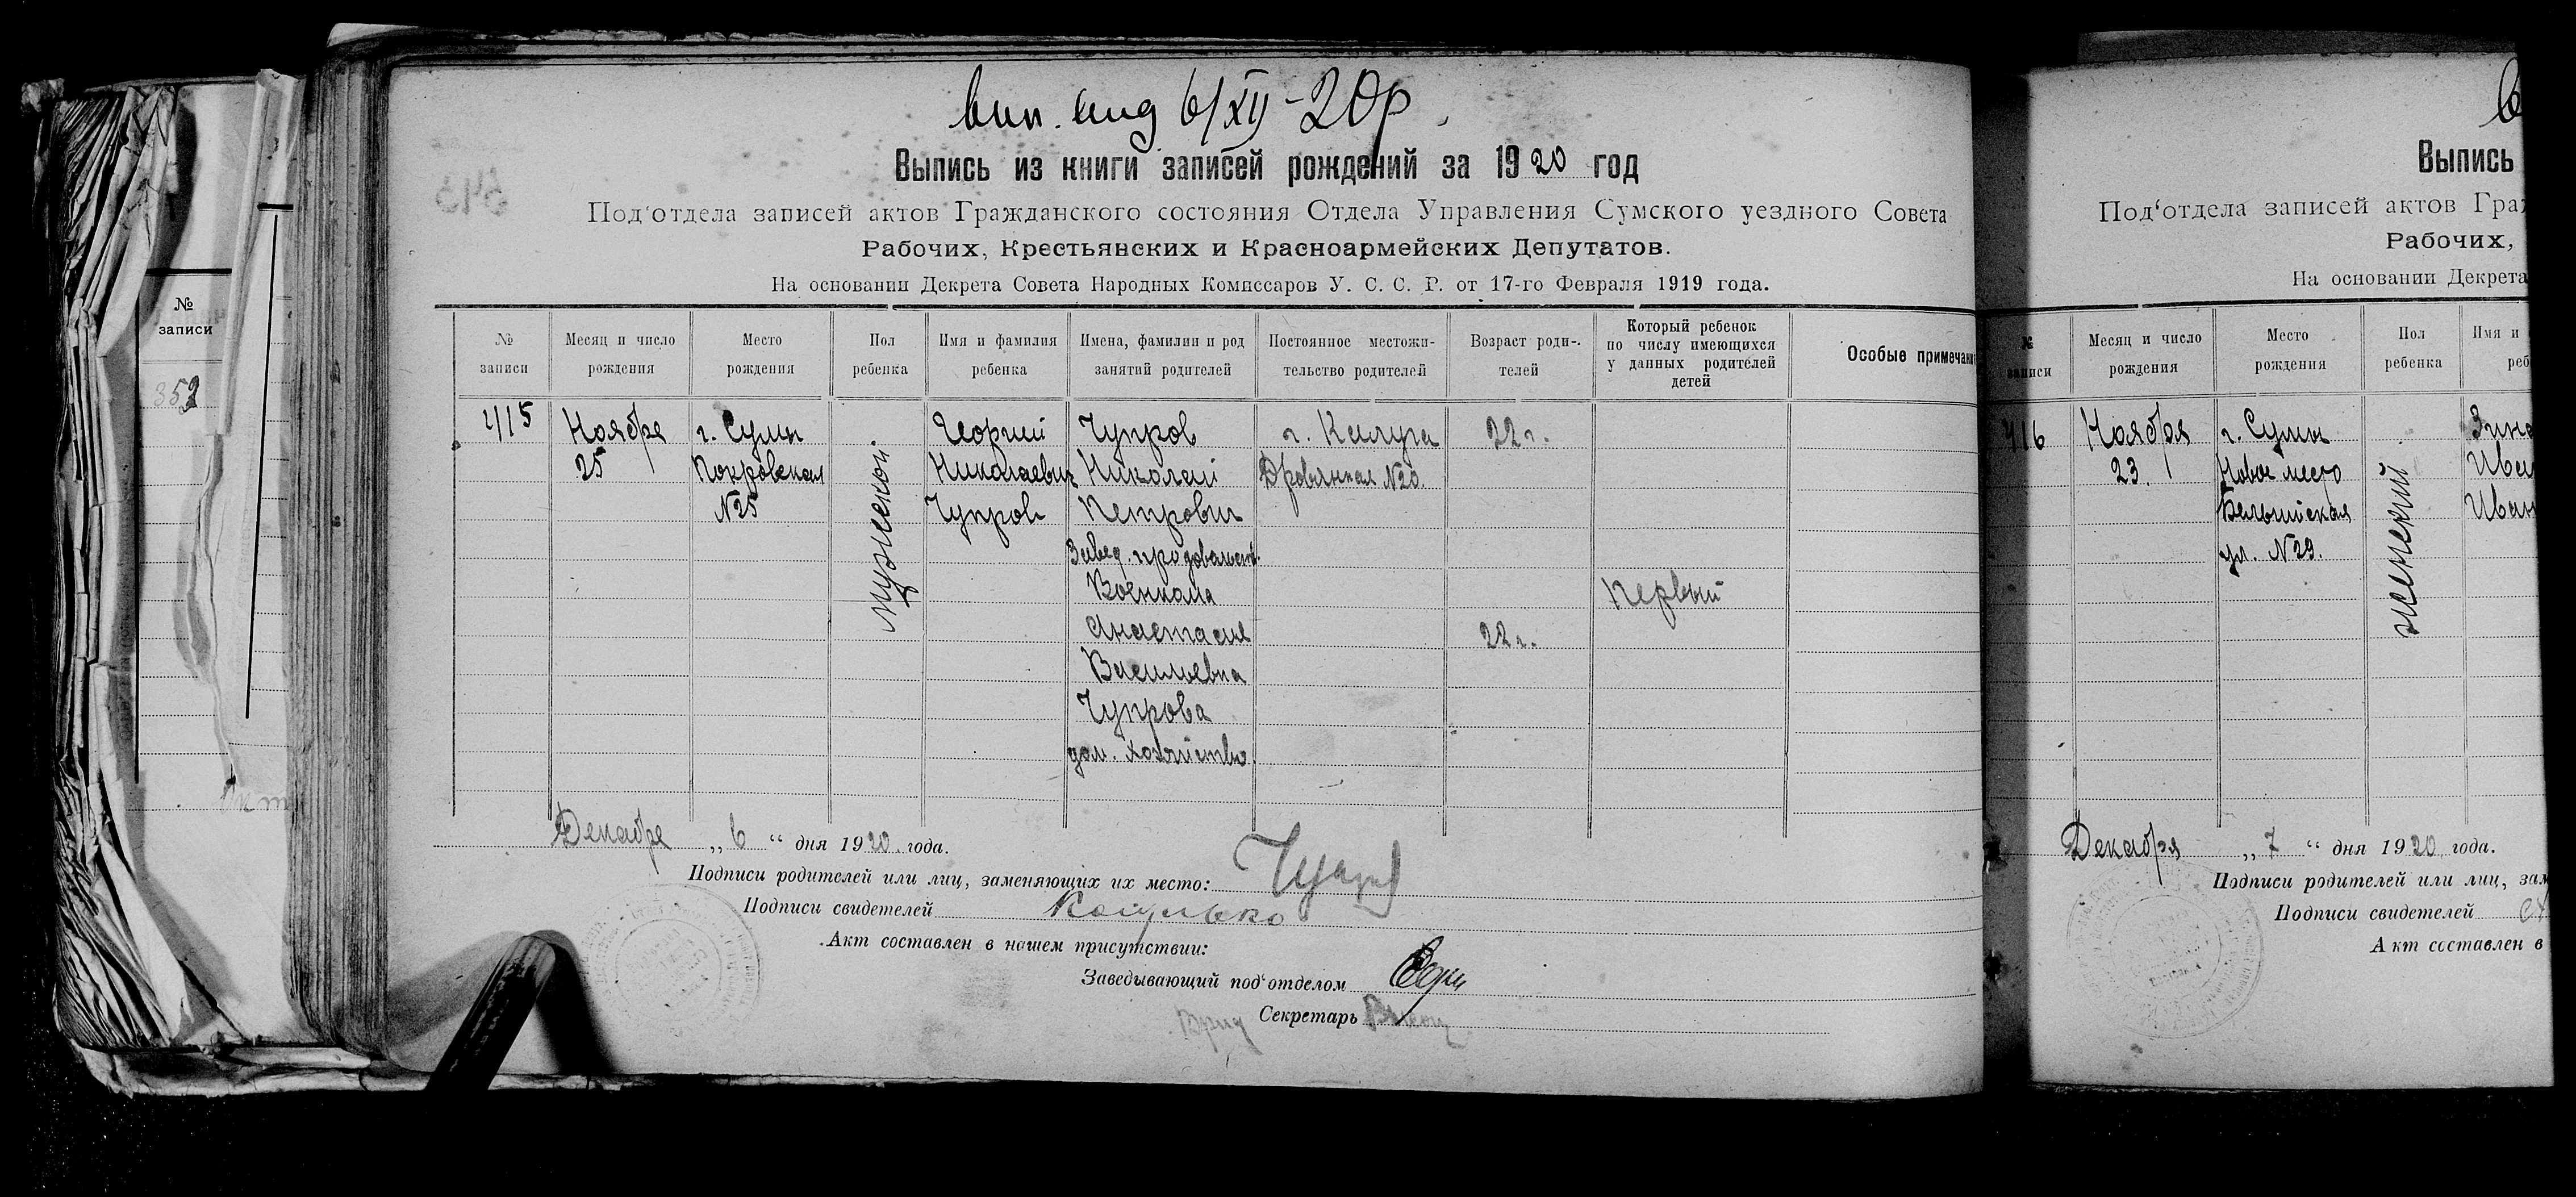 вып. выд 6/XII-20 р.
Выпись из книги записей рождений за 1920 год
Под'отдела записей актов Гражданского состояния Отдела Управления Сумского уездного Совета
Рабочих, Крестьянских и Красноармейских Депутатов.
На основании Декрета Совета Народных Комиссаров У. С. С. Р. от 17-го Февраля 1919 года.
№ записи
Месяц и число рождения
Место рождения
Пол ребенка
Имя и фамилия ребенка
Имена, фамилии и род занятий родителей
Постоянное местожительство родителей
Возраст родителей
Который ребенок по числу имеющихся у данных родителей детей
Особые примечани
415
Ноября
25
г. Сумы
Покровская
№25
мужской
Георгий
Николаевич
Чупров
Чупров
Николай
Петрович
Завед. продовольст.
Военкома
Анастасия
Васильевна
Чупрова
дом. хозяйство
г. Калуга
Дровянная №20.
22 г.
22 г.
Первый
Декабря „6“ дня 1920 года.
Подписи родителей или лиц, заменяющих их место: Чупров
Подписи свидетелей
Акт составлен в нашем присутствии:
Заведывающий под'отделом
Врид Секретарь
№
записи
353
Выпись
Под'отдела записей актов Граж
Рабочих,
На основании Декрета
№ записи
Месяц и число рождения
Место рождения
Пол ребенка
Имя и
реб
416
Ноября
23
г. Сумы
Новое место
ул. №29.
женский
Зина
Иван
Иван
Декабря „7“ дня 1920 года.
Подписи родителей или лиц, зам
Подписи свидетелей
Акт составлен в